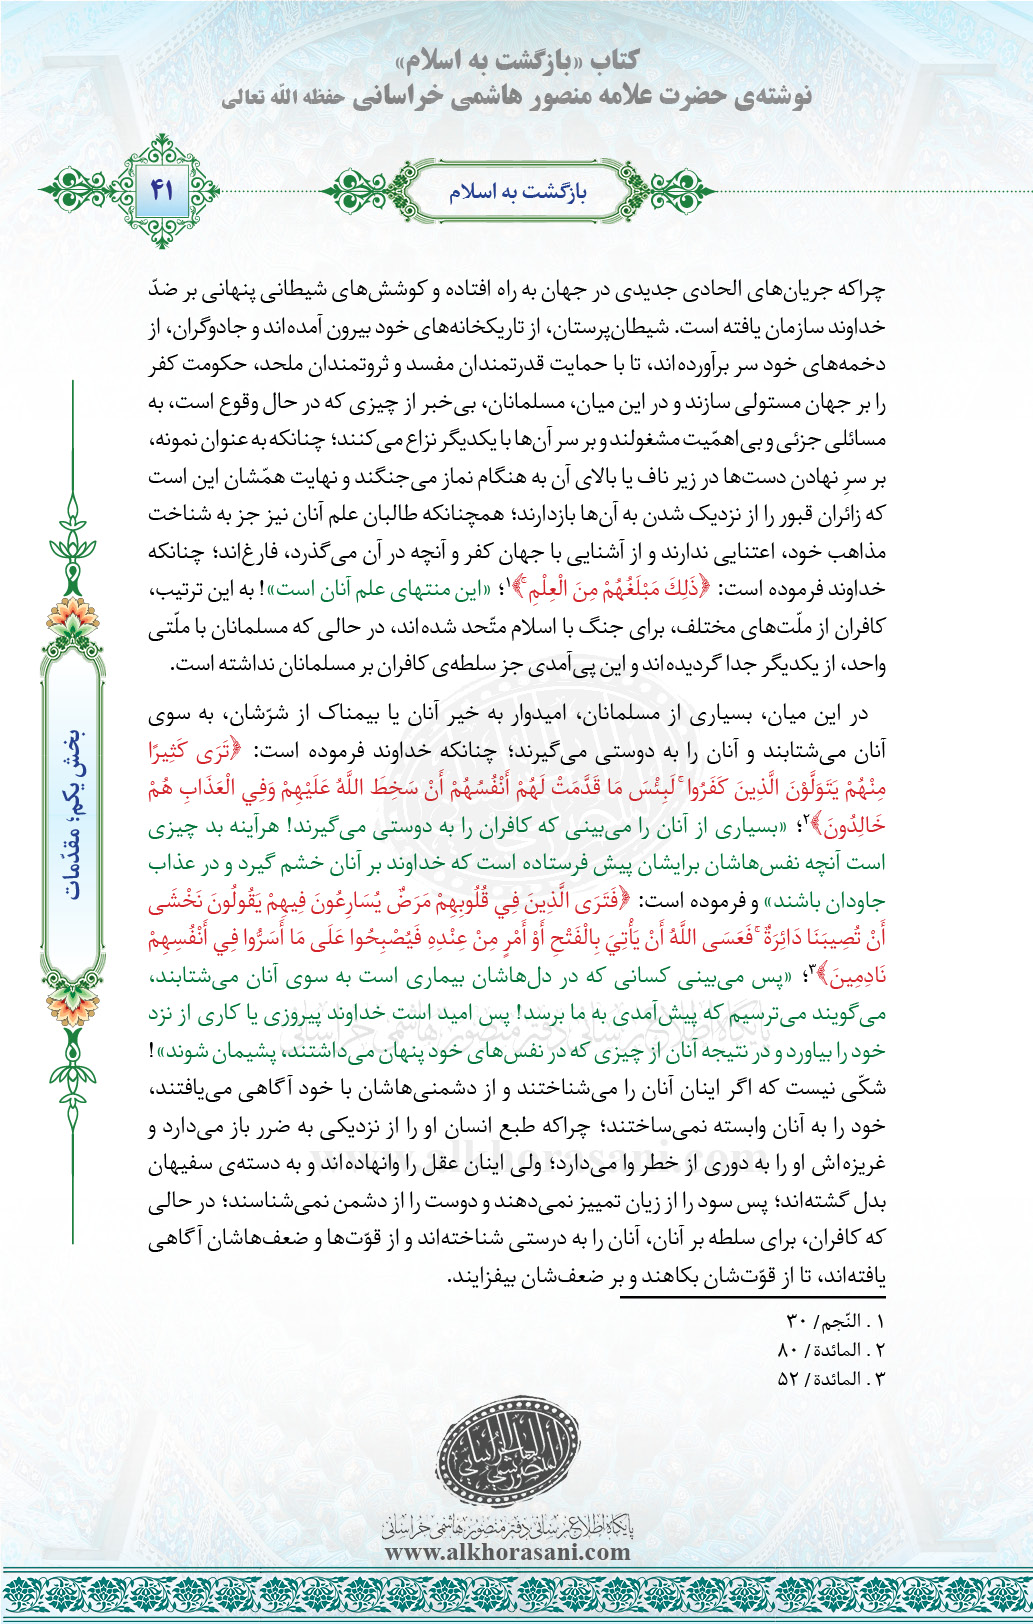 کتاب «بازگشت به اسلام»
نوشته‌ی حضرت علامه منصور هاشمی خراسانی حفظه الله تعالی
بازگشت به اسلام
۴۱
چراکه جریان‌های الحادی جدیدی در جهان به راه افتاده و کوشش‌های شیطانی پنهانی بر ضدّ
خداوند سازمان یافته است. شیطان‌پرستان، از تاریکخانه‌های خود بیرون آمده‌اند و جادوگران، از
دخمه‌های خود سر برآورده‌اند، تا با حمایت قدرتمندان مفسد و ثروتمندان ملحد، حکومت کفر
را بر جهان مستولی سازند و در این میان، مسلمانان، بی‌خبر از چیزی که در حال وقوع است، به
مسائلی جزئی و بی‌اهمّیت مشغولند و بر سر آن‌ها با یکدیگر نزاع می‌کنند؛ چنانکه به عنوان نمونه،
بر سرِ نهادن دست‌ها در زیر ناف یا بالای آن به هنگام نماز می‌جنگند و نهایت همّشان این است
که زائران قبور را از نزدیک شدن به آن‌ها بازدارند؛ همچنانکه طالبان علم آنان نیز جز به شناخت
مذاهب خود، اعتنایی ندارند و از آشنایی با جهان کفر و آنچه در آن می‌گذرد، فارغ‌اند؛ چنانکه
خداوند فرموده است: ﴿ذَلِكَ مَبْلَغُهُمْ مِنَ الْعِلْمِ ۚ﴾۱؛ «این منتهای علم آنان است»! به این ترتیب،
کافران از ملّت‌های مختلف، برای جنگ با اسلام متّحد شده‌اند، در حالی که مسلمانان با ملّتی
واحد، از یکدیگر جدا گردیده‌اند و این پی‌آمدی جز سلطه‌ی کافران بر مسلمانان نداشته است.
در این میان، بسیاری از مسلمانان، امیدوار به خیر آنان یا بیمناک از شرّشان، به سوی
آنان می‌شتابند و آنان را به دوستی می‌گیرند؛ چنانکه خداوند فرموده است: ﴿تَرَى كَثِيرًا
مِنْهُمْ يَتَوَلَّوْنَ الَّذِينَ كَفَرُوا ۚ لَبِئْسَ مَا قَدَّمَتْ لَهُمْ أَنْفُسُهُمْ أَنْ سَخِطَ اللَّهُ عَلَيْهِمْ وَفِي الْعَذَابِ هُمْ
خَالِدُونَ﴾۲؛ «بسیاری از آنان را می‌بینی که کافران را به دوستی می‌گیرند! هرآینه بد چیزی
است آنچه نفس‌هاشان برایشان پیش فرستاده است که خداوند بر آنان خشم گیرد و در عذاب
جاودان باشند» و فرموده است: ﴿فَتَرَى الَّذِينَ فِي قُلُوبِهِمْ مَرَضٌ يُسَارِعُونَ فِيهِمْ يَقُولُونَ نَخْشَى
أَنْ تُصِيبَنَا دَائِرَةٌ ۚ فَعَسَى اللَّهُ أَنْ يَأْتِيَ بِالْفَتْحِ أَوْ أَمْرٍ مِنْ عِنْدِهِ فَيُصْبِحُوا عَلَى مَا أَسَرُّوا فِي أَنْفُسِهِمْ
نَادِمِينَ﴾۳؛ «پس می‌بینی کسانی که در دل‌هاشان بیماری است به سوی آنان می‌شتابند،
می‌گویند می‌ترسیم که پیش‌آمدی به ما برسد! پس امید است خداوند پیروزی یا کاری از نزد
خود را بیاورد و در نتیجه آنان از چیزی که در نفس‌های خود پنهان می‌داشتند، پشیمان شوند»!
شکّی نیست که اگر اینان آنان را می‌شناختند و از دشمنی‌هاشان با خود آگاهی می‌یافتند،
خود را به آنان وابسته نمی‌ساختند؛ چراکه طبع انسان او را از نزدیکی به ضرر باز می‌دارد و
غریزه‌اش او را به دوری از خطر وا می‌دارد؛ ولی اینان عقل را وانهاده‌اند و به دسته‌ی سفیهان
بدل گشته‌اند؛ پس سود را از زیان تمییز نمی‌دهند و دوست را از دشمن نمی‌شناسند؛ در حالی
که کافران، برای سلطه بر آنان، آنان را به درستی شناخته‌اند و از قوّت‌ها و ضعف‌هاشان آگاهی
یافته‌اند، تا از قوّت‌شان بکاهند و بر ضعف‌شان بیفزایند.
۱ . النّجم/ ۳۰
۲ . المائدة/ ۸۰
۳ . المائدة/ ۵۲
بخش یکم؛ مقدّمات
پایگاه اطلاع رسانی دفتر منصور هاشمی خراسانی
www.alkhorasani.com
پایگاه اطلاع رسانی دفتر منصور هاشمی خراسانی
www.alkhorasani.com